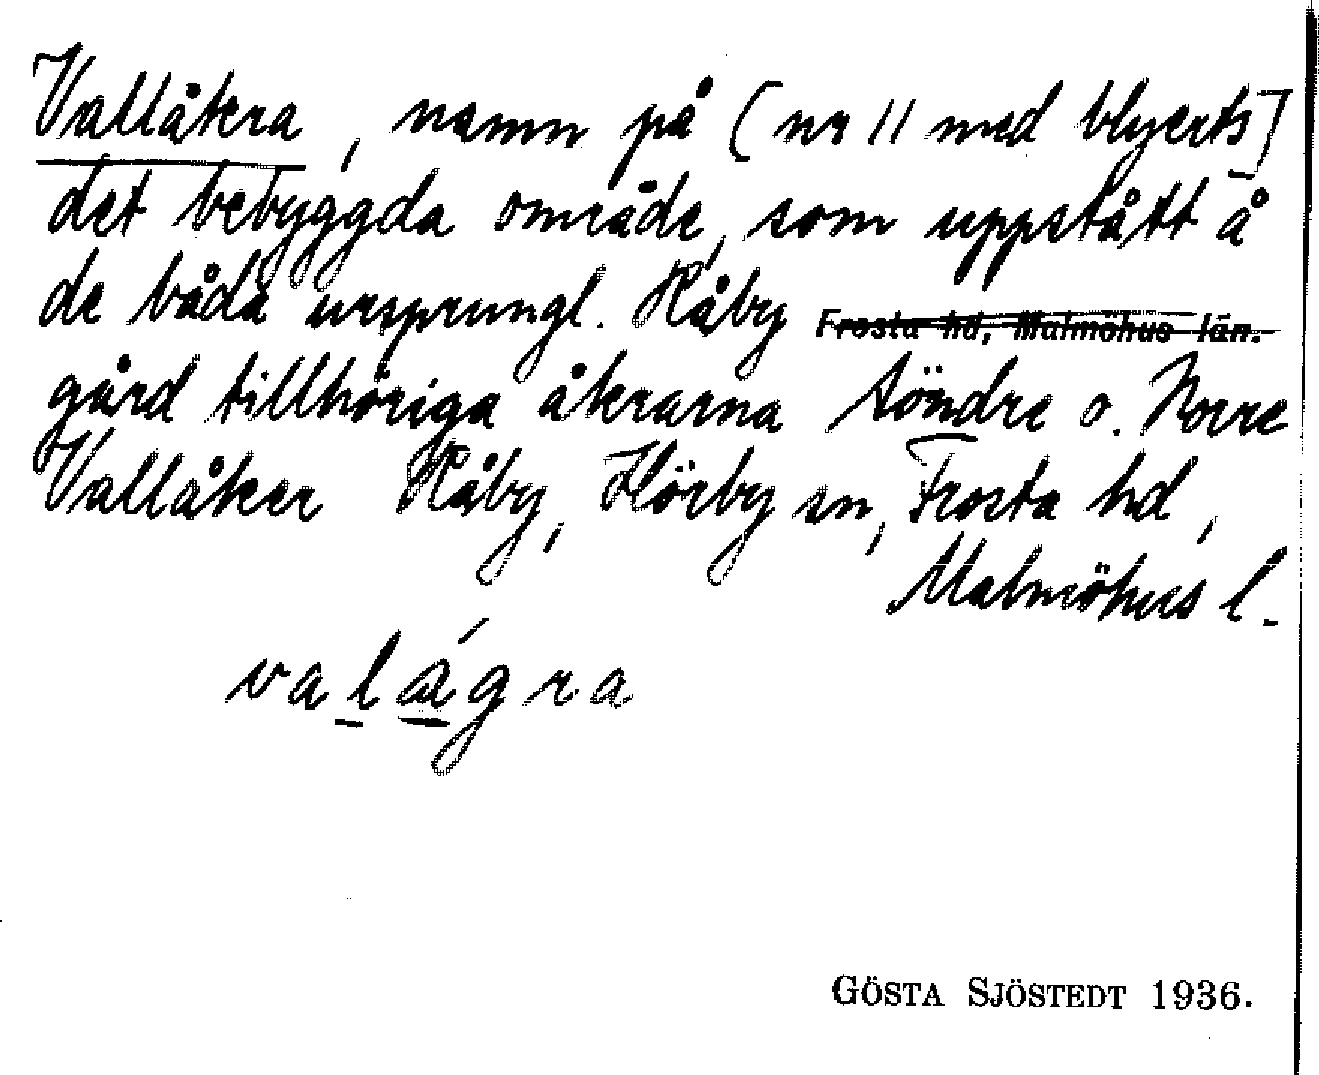 Vallåkra, namn på [nr 11 med blyerts]
det bebyggda område, som uppstått å
de båda ursprungl. Råby Frosta hd, Malmöhus län.
gård tillhöriga åkrarna Söndre o. Norre
Vallåker Råby, Hörby sn, Frosta hd,
Malmöhus l.
valágra
GÖSTA SJÖSTEDT 1936.